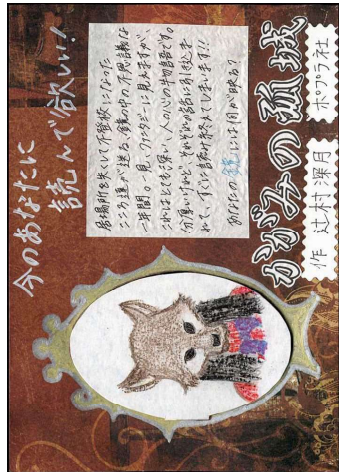 今のあなたに
読んで欲しい!
居場所を失くして不登校になった
こころ達が送る、鏡の中の不思議な
一年間。一見、ファンタジーに見えますが、
これはとても深い、人の心の物語です。
分厚いけれど、それぞれの話に引き込ま
れて、すぐに読み終えてしまいます!!
あなたの鏡には何が映る?
かがみの孤城
作 辻村深月 ポプラ社